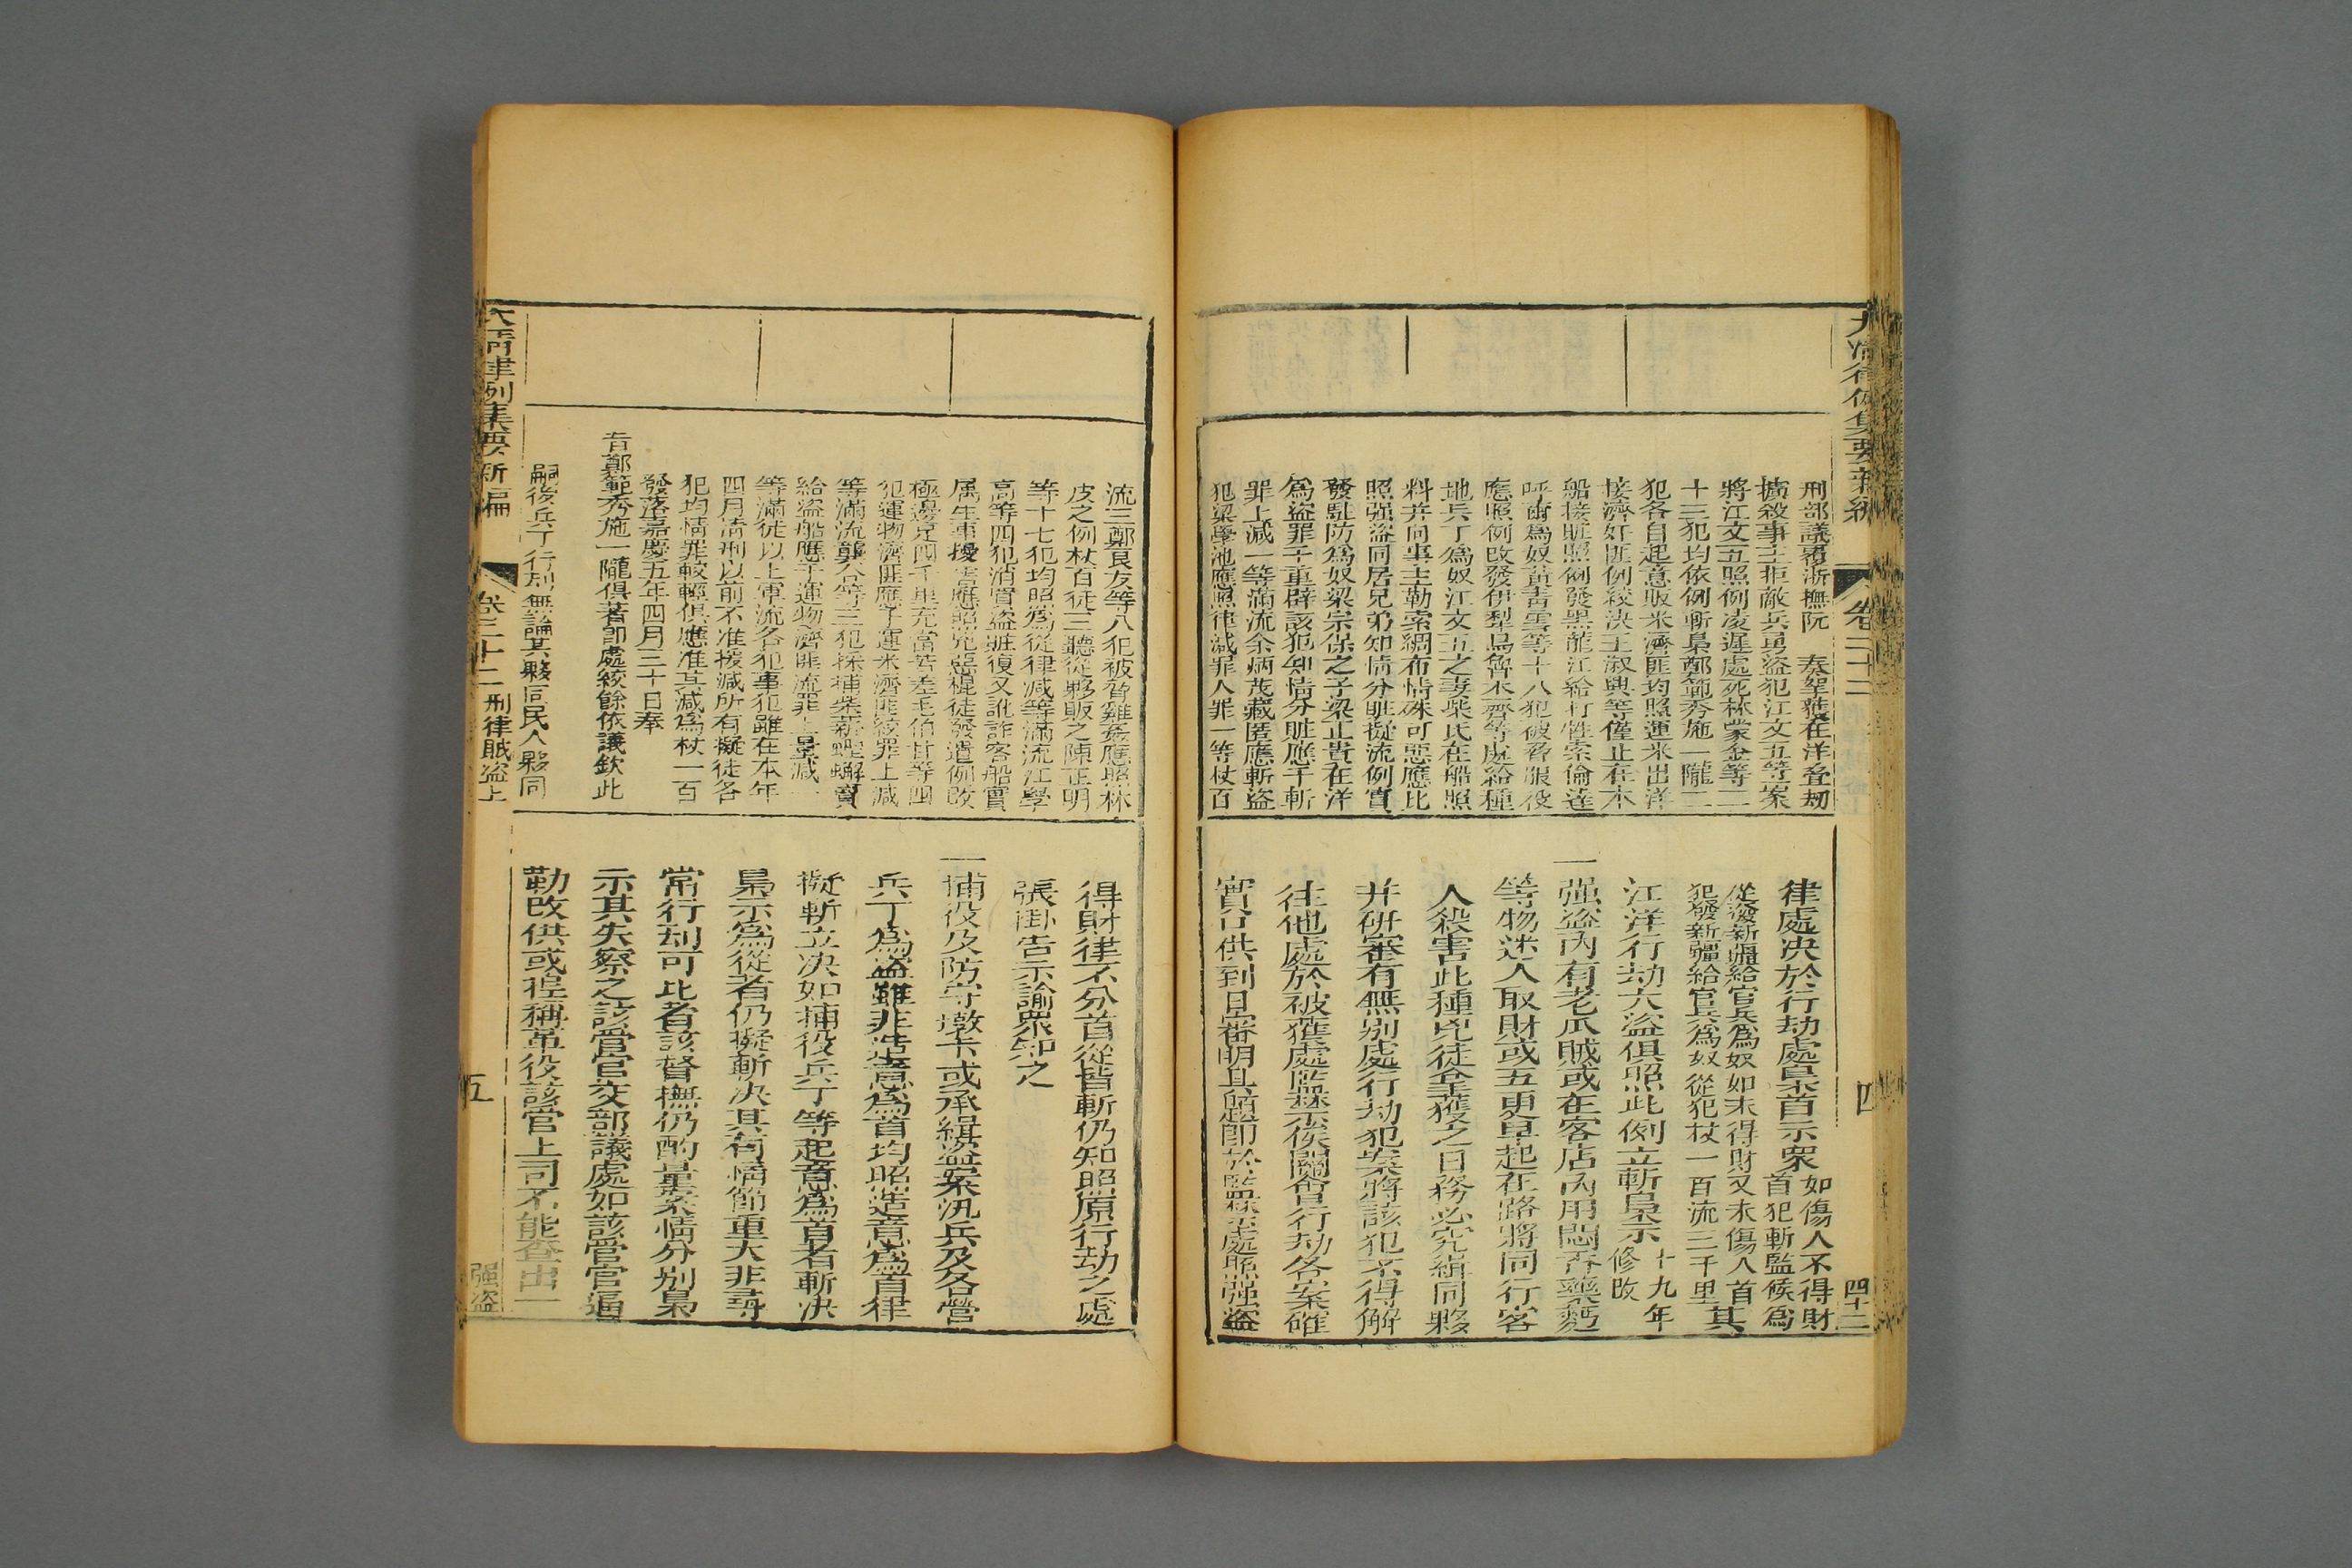 大淸律例集要新編
卷二十二
四
四十二
刑部議覆浙撫阮　奏拏獲在洋叠刼
擄殺事主拒敵兵勇盜犯江文五等案
將江文五照例凌遲處死林蒙金等二
十三犯均依例斬梟鄭範秀施一隴二
犯各自起意販米濟匪均照運米出洋
接濟奸匪例絞決王淑興等僅止在本
船接賍照例發黑龍江給打牲索倫達
呼爾爲奴黃靑雲等十八犯被脅服役
應照例改發伊犁烏魯木齊等處給種
地兵丁爲奴江文五之妻柴氏在船照
料并向事主勒索綢布情殊可惡應比
照强盜同居兄弟知情分賍擬流例實
發駐防爲奴梁宗保之子梁正貴在洋
爲盜罪干重辟該犯知情分賍應于斬
罪上減一等滿流余病茂藏匿應斬盜
犯梁學池應照律減罪人罪一等杖百
律處决於行劫處梟首示衆如傷人不得財首犯斬監候爲
從發新疆給官兵爲奴如未得財又未傷人首
犯發新疆給官兵爲奴從犯杖一百流三千里其
江洋行劫大盜俱照此例立斬梟示十九年修改
一强盜內有老爪賊或在客店內用悶香藥麪
等物迷人取財或五更早起在路將同行客
人殺害此種兇徒拿獲之日務必究緝同夥
并研審有無別處行劫犯案將該犯不得解
往他處於被獲處監禁俟關會行劫各案確
實口供到日審明具題卽於監禁處照强盜
流三鄭良友等八犯被脅雞姦應照林
皮之例杖百徒三聽從夥販之陳正明
等十七犯均照爲從律減等滿流江學
高等四犯消買盜賍復又訛詐客船實
属生事擾害應照兇惡棍徒發遣例改
極邊足四千里充當苦差王伯甘等四
犯運物濟匪應于運米濟匪絞罪上減
等滿流龔谷等三犯採捕柴薪蟶蠏賣
給盜船應于運物濟匪流罪上量減一
等滿徒以上軍流各犯事犯雖在本年
四月淸刑以前不准援減所有擬徒各
犯均情罪較輕俱應准其減爲杖一百
發落嘉慶五年四月三十日奉
旨鄭範秀施一隴俱著卽處絞餘依議欽此
嗣後兵丁行刼無論其夥同民人夥同
得財律不分首從皆斬仍知照原行劫之處
張掛告示諭衆知之
一捕役及防守墩卡或承緝盜案汛兵及各營
兵丁爲盜雖非造意爲首均照造意爲首律
擬斬立决如捕役兵丁等起意爲首者斬決
梟示爲從者仍擬斬决其有情節重大非尋
常行刦可比者該督撫仍酌量案情分別梟
示其失察之該管官交部議處如該管官逼
勒改供或捏稱革役該管上司不能查出一
大淸律例集要新編
卷二十二　刑律賊盜上
五
强盜